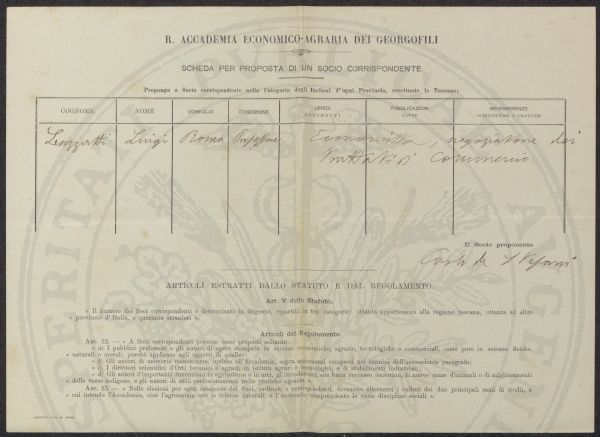 R. ACCADEMIA ECONOMICO-AGRARIA DEI GEORGOFILI
SCHEDA PER PROPOSTA DI UN SOCIO CORRISPONDENTE
Propongo a Socio corrispondente nella Categoria degli Italiani d'ogni Provincia, eccettuate le Toscane:
COGNOME NOME DOMICILIO CONDIZIONE UFFICI PUBBLICAZIONI FATTE BENEMERENZE SCIENTIFICHE O PRATICHE
Luzzatti Luigi Roma Professore Economista, negoziatore dei
Trattati di Commercio
Il Socio proponente
Carlo de Stefani
ARTICOLI ESTRATTI DALLO STATUTO E DAL REGOLAMENTO.
Art. V dello Statuto.
« Il numero dei Soci corrispondenti è determinato in dugento, ripartiti in tre categorie: ottanta appartenenti alla regione toscana, ottanta ad altre
« provincie d'Italia, e quaranta stranieri ».
Articoli del Regolamento.
ART. 12. — « A Soci corrispondenti possono esser proposti soltanto:
« a) I pubblici professori e gli autori di opere stampate in scienze economiche, agrarie, tecnologiche o commerciali, come pure in scienze fisiche,
« naturali o morali, purchè applicate agli oggetti di quelle;
« b) Gli autori di memorie manoscritte, inviate all'Accademia, sopra argomenti compresi nei termini dell'antecedente paragrafo;
« c) I direttori scientifici d'Orti botanici o agrari, di istituti agrari o tecnologici, o di stabilimenti industriali;
« d) Gli autori d'importanti invenzioni in agricoltura o in arti, gl'introduttori, con buon successo accertato, di nuove razze d'animali o di miglioramenti
« delle razze indigene, e gli autori di utili perfezionamenti nelle pratiche agrarie ».
ART. 15. — « Nelle elezioni per ogni categoria dei Soci, ordinari o corrispondenti, dovranno alternarsi i cultori dei due principali rami di studii, a
« cui intende l'Accademia, cioè l'agronomia con le scienze naturali, e l'economia comprendente le varie discipline sociali ».